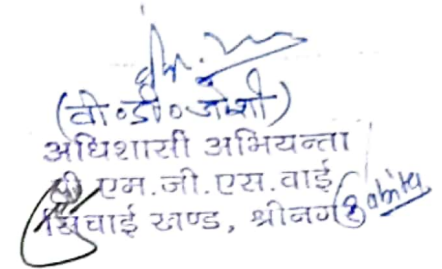 (वी०डी०जोशी)
अधिशासी अभियन्ता
पी.एम.जी.एस.वाई.
सिंचाई खण्ड, श्रीनगर